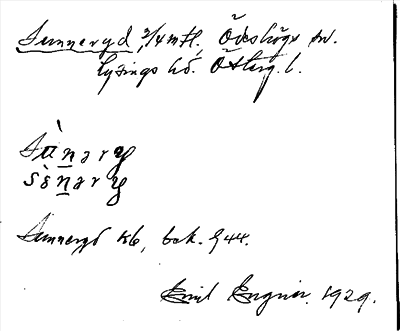 Sunneryd, 3/4 mtl. Ödeshögs sn.
Lysings hd. Österg. l.
Sùnary
sènary
Sunneryd kb, bok. § 44.
Emil Engner. 1929.